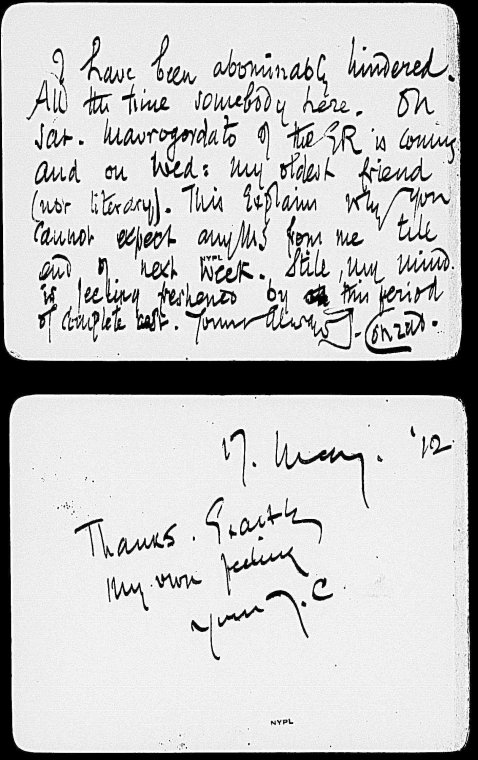 I have been abominably hindered.
All the time somebody here. On
Sat. Mavrogordato of the ER is coming
and on Wed: my oldest friend
(not literary). This Explains why You
cannot expect any MS from me till
end of next Week. Still, my mind
NYPL
is feeling freshened by this period
of complete rest. Yours always J. Conrad.
17. May. '12
Thanks. Exactly
my own feeling
Yours J. C
NYPL